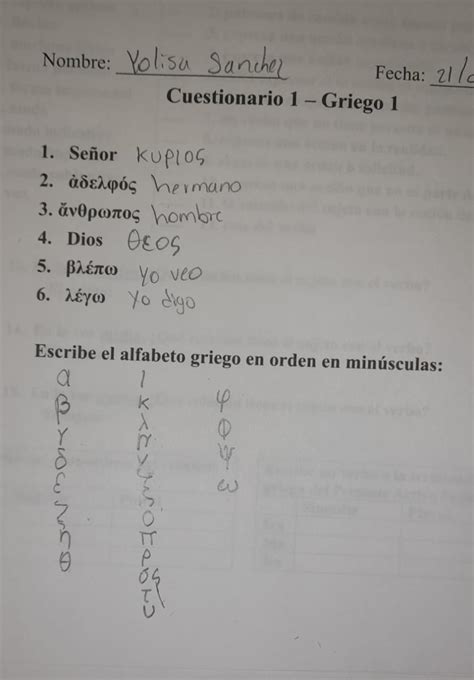 Nombre: Yolisa Sanchez Fecha: 21/
Cuestionario 1 – Griego 1
1. Señor κυριος
2. ἀδελφός hermano
3. ἄνθρωπος hombre
4. Dios θεος
5. βλέπω yo veo
6. λέγω Yo digo
Escribe el alfabeto griego en orden en minúsculas:
α
β
γ
δ
ε
ζ
η
θ
ι
κ
λ
ν
ξ
ο
π
ρ
σς
τ
υ
φ
ψ
ω